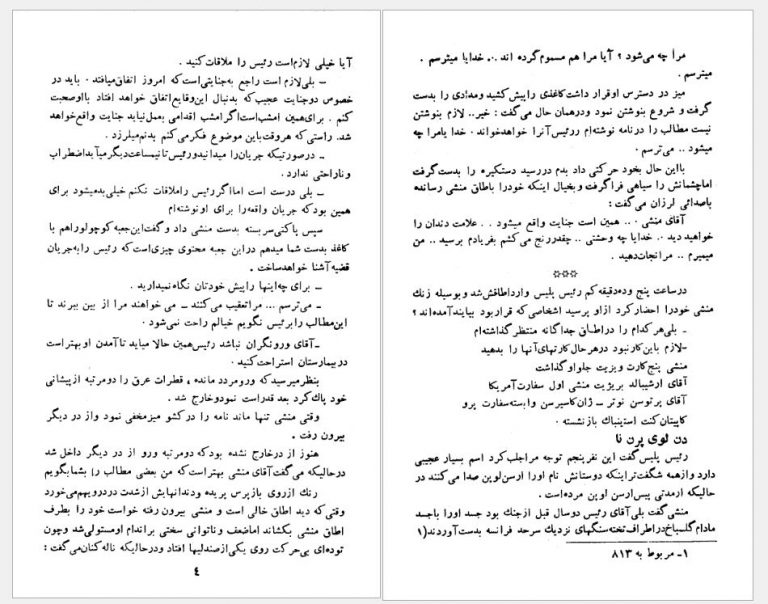 آیا خیلی لازم است رئیس را ملاقات کنید .
– بلی لازم است راجع به جنایتی است که امروز اتفاق میافتد ۰ باید در
خصوص دوجنایت عجیب که بدنبال این وقایع اتفاق خواهد افتاد بااو صحبت
کنم . برای همین امشب است اگر امشب اقدامی بعمل نیاید جنایت واقع خواهد
شد. راستی که هروقت باین موضوع فکر می کنم بدنم میلرزد .
ـ درصورتیکه جریان را میدانید ورئیس تا نیمساعت دیگر میآید اضطراب
و ناراحتی ندارد .
ـ بلی درست است اما اگر رئیس را ملاقات نکنم خیلی بد میشود برای
همین بود که جریان واقعه را برای او نوشته ام
سپس پاکتی سر بسته بدست منشی داد و گفت این جعبه کوچولو را هم با
کاغذ بدست شما میدهم در این جعبه محتوی چیزی است که رئیس را به جریان
قضیه آشنا خواهد ساخت .
ـ برای چه اینها را پیش خودتان نگاه نمیدارید .
ـ می ترسم ... مرا تعقیب می کنند ـ می خواهند مرا از بین ببرند تا
این مطالب را برئیس نگویم خیالم راحت نمی شود ۰
ـ آقای ورو نگران نباشد رئیس همین حالا میاید تا آمدن او بهتر است
در بیمارستان استراحت کنید ۰
بنظر میرسید که ورو مردد مانده ، قطرات عرق را دو مرتبه از پیشانی
خود پاک کرد بعد قد راست نمود و خارج شد .
وقتی منشی تنها ماند نامه را در کشو میز مخفی نمود واز در دیگر
بیرون رفت .
هنوز از در خارج نشده بود که دو مرتبه ورو از در دیگر داخل شد
درحالیکه می گفت آقای منشی بهتر است که من بعضی مطالب را بشما بگویم
رنک ازروی بازپرس پریده ودندانهایش ازشدت درد رویهم می خورد
وقتی که دید اطاق خالی است و منشی بیرون رفته خواست خود را بطرف
اطاق منشی بکشاند اما ضعف و ناتوانی سختی براندام او مستولی شد وچون
توده ای بی حرکت روی یکی از صندلیها افتاد ودرحالیکه ناله کنان می گفت :
٤
مرا چه می شود ؟ آیا مرا هم مسموم گرده اند .۰. خدایا میترسم .
میترسم .
میز در دسترس او قرار داشت کاغذی را پیش کشید ومدادی را بدست
گرفت و شروع بنوشتن نمود ودرهمان حال می گفت : خیر.. لازم بنوشتن
نیست مطالب را درنامه نوشته ام و رئیس آنرا خواهد خواند ۰ خدا یا مرا چه
میشود .. می ترسم .
بااین حال بخود حرکتی داد بدم در رسید دستگیره را بدست گرفت
اما چشمانش را سیاهی فرا گرفت و بخیال اینکه خود را باطاق منشی رسانده
باصدائی لرزان می گفت :
آقای منشی ۰ .. همین است جنایت واقع میشود . . علامت دندان را
خواهید دید ۰. خدایا چه وحشتی .. چقدر رنج می کشم بفریادم برسید .. من
میمیرم .. مرا نجات دهید .
☆☆☆
درساعت پنج وده دقیقه کم رئیس پلیس وارد اطاقش شد و بوسیله زنك
منشی خود را احضار کرد از او پرسید اشخاصی که قرار بود بیایند آمده اند ؟
ـ بلی هر کدام را دراطاق جداگانه منتظر گذاشته ام
ـ لازم باین کار نبود درهر حال کارتهای آنها را بدهید
منشی پنج کارت و یزیت جلو او گذاشت
آقای ارشیبالد بریژیت منشی اول سفارت آمریکا
آقای پرتوسن نوتر ـ ژان کاسیرس وابسته سفارت پرو
کاپیتان کنت استینباك بازنشسته ۰
دن لوی پرن نا
رئیس پلیس گفت این نفر پنجم توجه مرا جلب کرد اسم بسیار عجیبی
دارد وازهمه شگفت تر اینکه دوستانش نام اورا ارسن لوپن صدا می کنند در
حالیکه از مدتی پیش ارسن لوپن مرده است .
منشی گفت بلی آقای رئیس دو سال قبل از جنك بود جسد اورا با جسد
مادام گلسباخ در اطراف تخته سنگهای نزدیك سرحد فرانسه بدست آوردند(۱
۱ـ مربوط به ۸۱۳